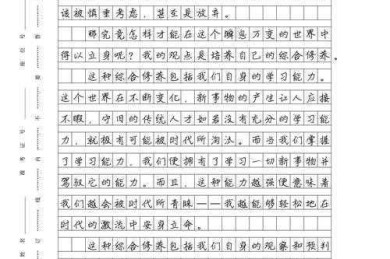 该被慎重考虑,甚至是放弃。
那究竟怎样才能在这个瞬息万变的世界中
得以立身呢?我的观点是培养自己的综合修养。
这种综合修养包括我们自身的学习能力。
这个世界在不断变化,新事物的产生让人应接
不暇,守旧的传统人才如若没有充分的学习能
力,就极有可能被时代所淘汰。而当我们掌握
了学习能力,我们便拥有了学习一切新事物并
驾驭它的能力。而且,这种能力越强便意味着
我们越会被时代所青睐——我越能够轻松地在
时代的激流中安身立命。
这种综合修养包括我们自身的观察和预判